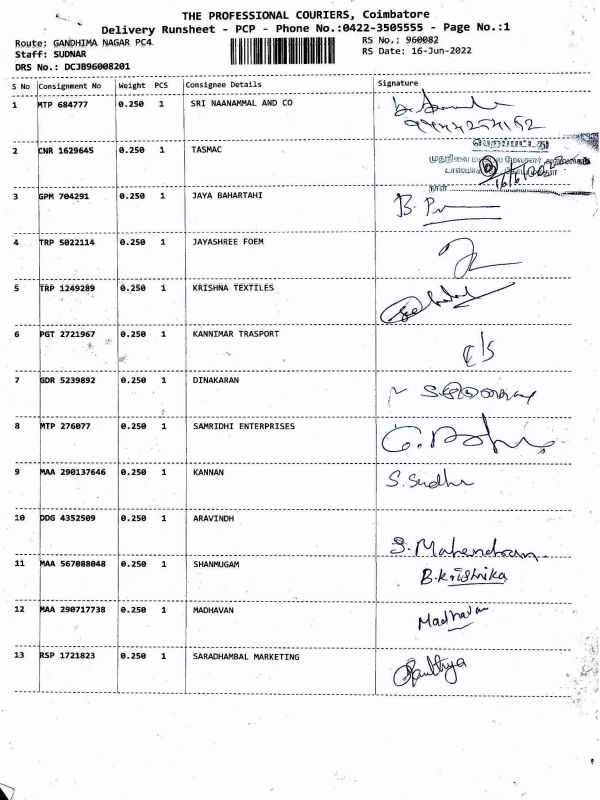 THE PROFESSIONAL COURIERS, Coimbatore
Delivery Runsheet - PCP - Phone No.:0422-3505555 - Page No.:1
Route: GANDHIMA NAGAR PC4
RS No.: 960082
Staff: SUDNAR
RS Date: 16-Jun-2022
DRS No.: DCJB96008201
S No Consignment No Weight PCS Consignee Details Signature
1 MTP 684777 0.250 1 SRI NAANAMMAL AND CO
2 CNR 1629645 0.250 1 TASMAC
பெறப்பட்டது
முதுநிலை மண்டல மேலாளர்
நாள்
3 GPM 704291 0.250 1 JAYA BAHARTAHI
4 TRP 5022114 0.250 1 JAYASHREE FOEM
5 TRP 1249289 0.250 1 KRISHNA TEXTILES
6 PGT 2721967 0.250 1 KANNIMAR TRASPORT
c/s
7 GDR 5239892 0.250 1 DINAKARAN
8 MTP 276077 0.250 1 SAMRIDHI ENTERPRISES
9 MAA 290137646 0.250 1 KANNAN S.Sudha
10 DDG 4352509 0.250 1 ARAVINDH
S. Mahendran
11 MAA 567088048 0.250 1 SHANMUGAM
B.Krishnika
12 MAA 290717738 0.250 1 MADHAVAN Madhavan
13 RSP 1721823 0.250 1 SARADHAMBAL MARKETING